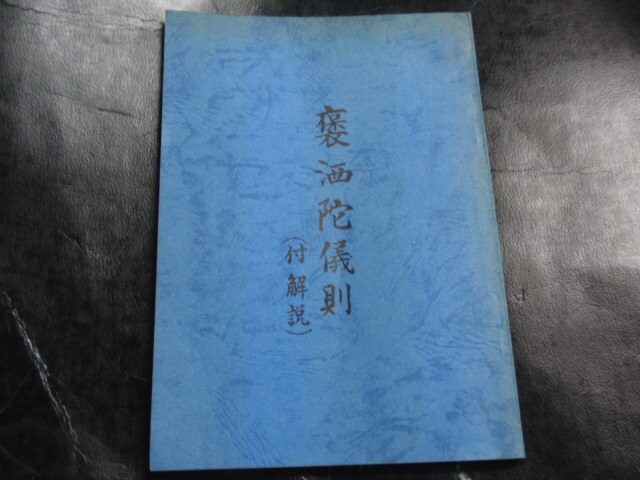 褒洒陀儀則
(付解説)